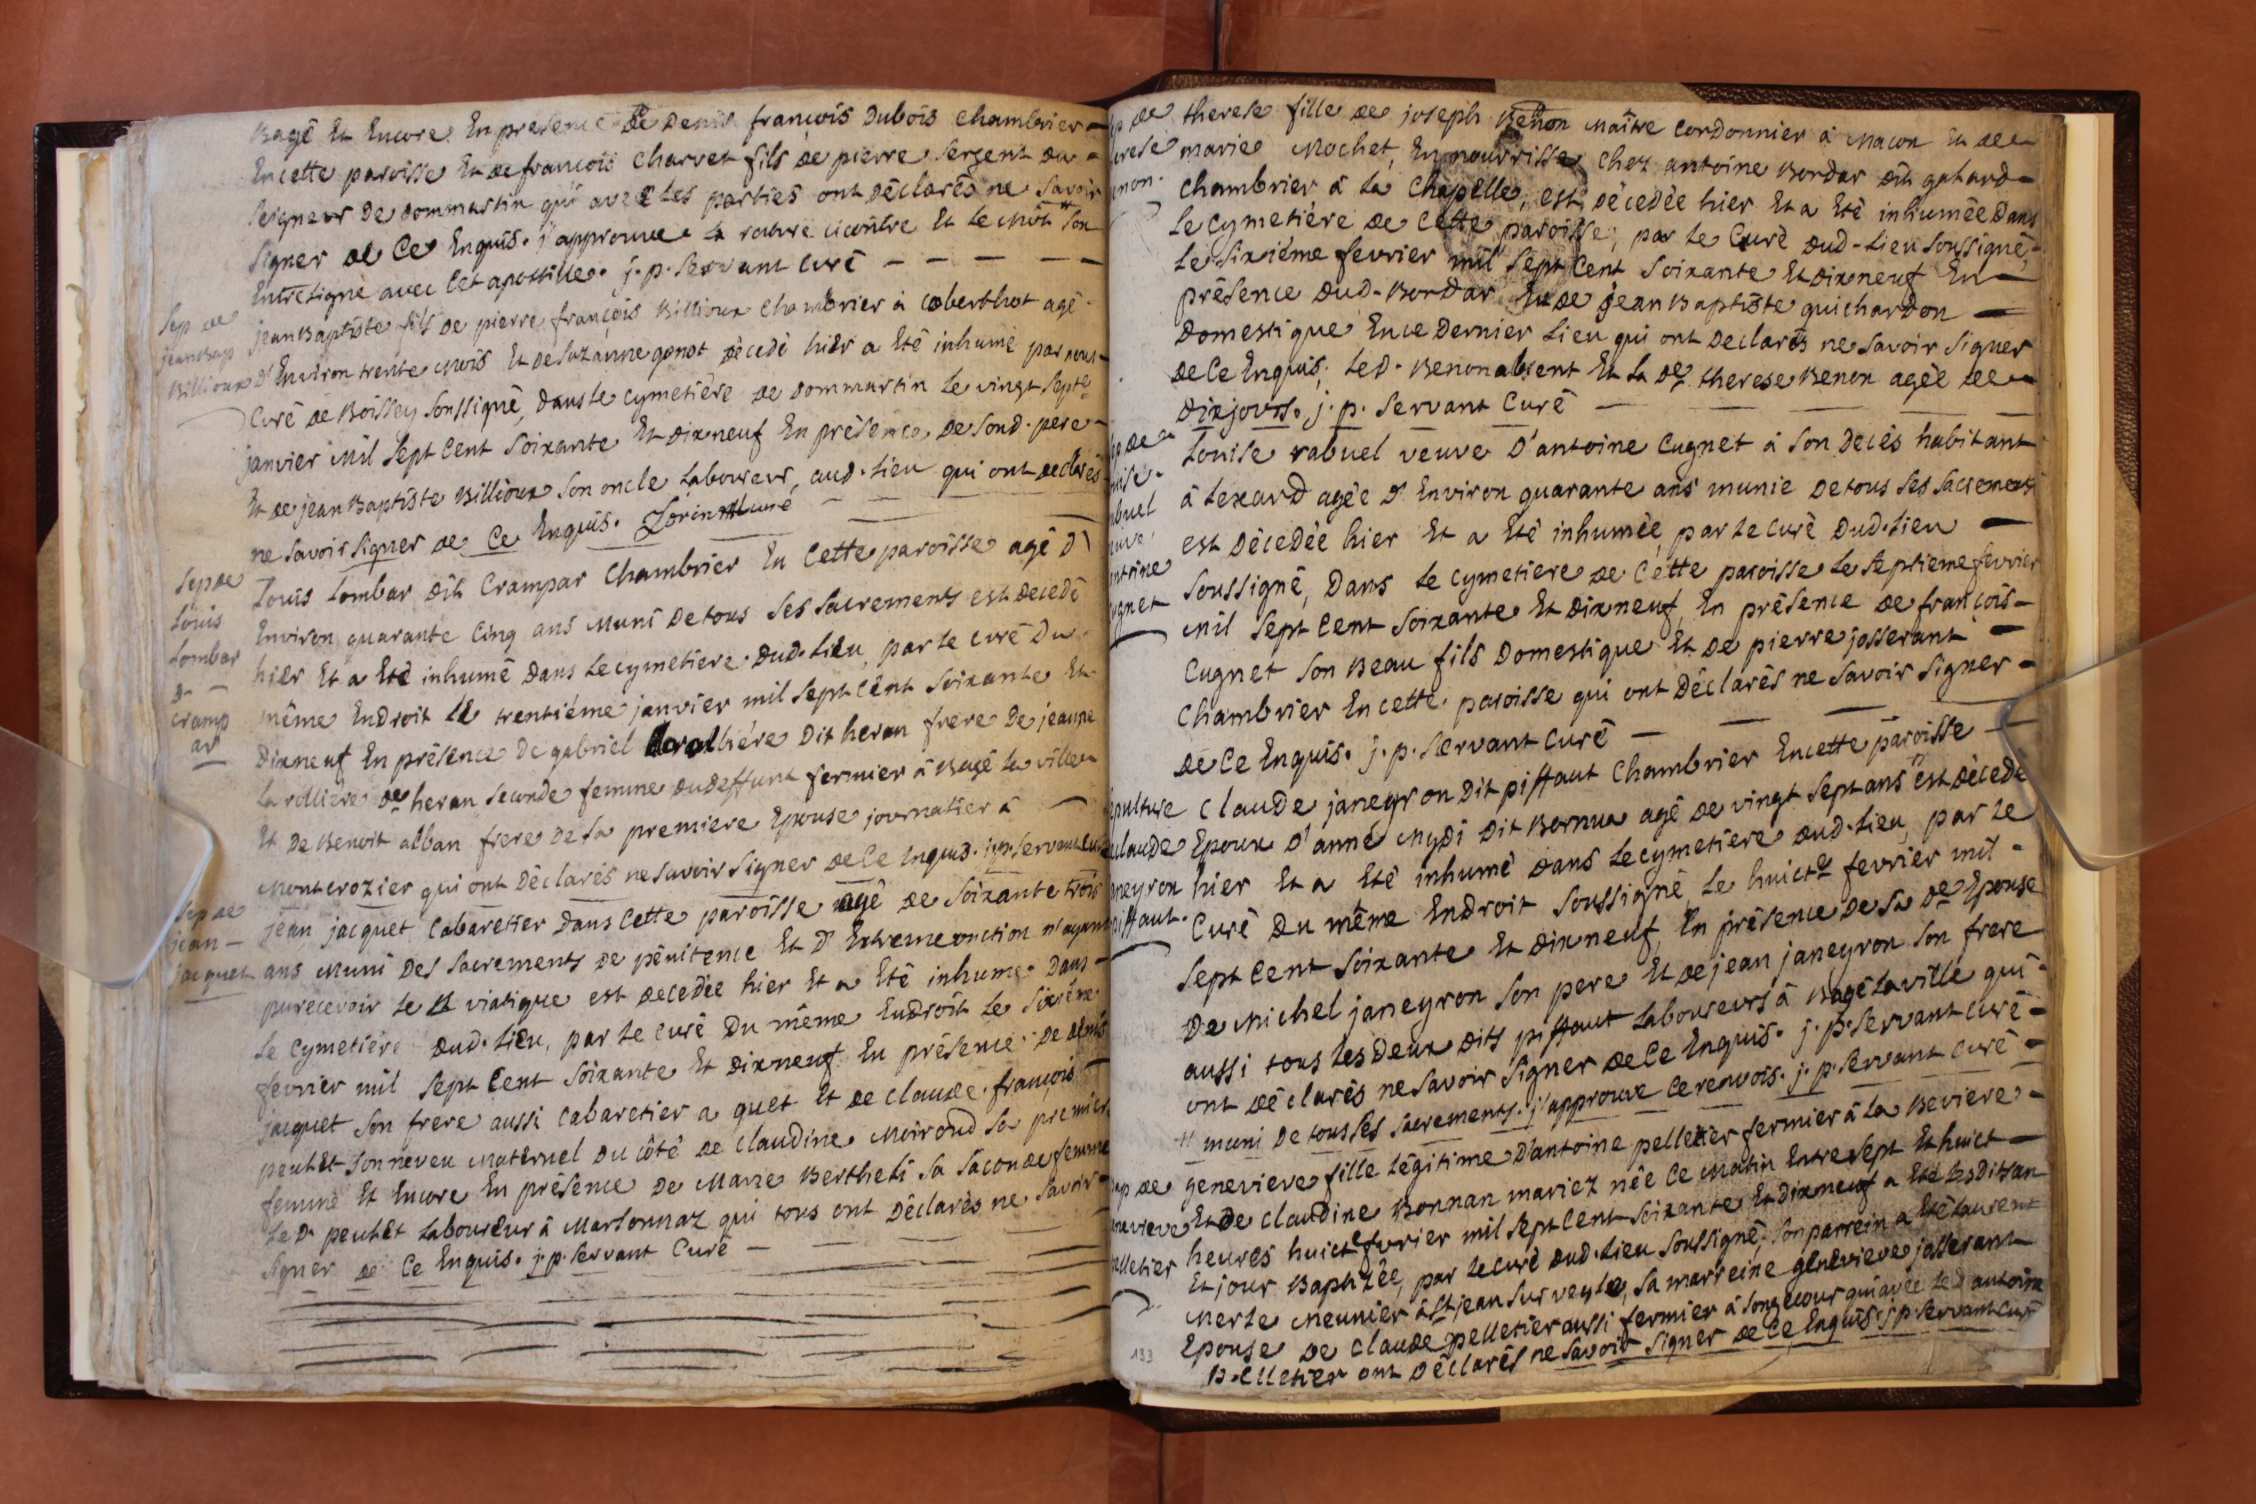 Bagé Et Encore En presence de Denis françois Dubois chambrier
En cette paroisse Et de françois Charvet fils de pierre sergent du
seigneur de dommartin qui avec les parties ont déclarés ne savoir
signer de Ce Enquis. j'approuve la rature cicontre Et le mot son
Entreligne avec Cet apostille. j. p. servant curé
Sep de
jean bap
Billioux
jean Baptiste fils de pierre françois Billioux chambrier à coberthot agé
d'Environ trente mois Et de Suzanne gonot décedé hier a Eté inhumé par nous
Curé de Boissey soussigné, dans le cymetiére de dommartin le vingt sept
janvier mil sept Cent soixante Et dixneuf En présence de sond. pere
Et de jean Baptiste Billioux son oncle laboureur, aud. lieu qui ont declarés
ne savoir signer de Ce Enquis. Lorin curé
Sep de
Louis
Lombar
d.
cramp
ar
Louis Lombar dit Crampar Chambrier En Cette paroisse agé d'
Environ quarante Cinq ans muni de tous ses sacrements est décedé
hier Et a Eté inhumé dans le cymetiere dud. lieu, par le curé du
même Endroit le trentiéme janvier mil sept Cent soixante Et
dixneuf En présence de gabriel larolliére dit heran frere de jeanne
larolliere de heran seconde femme dud deffunt fermier à Bagé la ville
Et de Benoit alban frere de sa premiere Epouse journalier à
Montcrozier qui ont déclarés ne savoir signer de Ce Enquis. j. p. servant curé
Sep de
jean
jacquet
jean jacquet Cabaretier dans Cette paroisse agé de soixante trois
ans muni des sacrements de pénitence Et d'Extreme onction n'ayant
pu recevoir le viatique est décedée hier Et a Eté inhumé dans
le Cymetiére dud. lieu, par le curé du même Endroit le sixiéme
fevrier mil sept Cent soixante Et dixneuf En présence de denis
jacquet son frere aussi Cabaretier a quet Et de claude françois
peutet son neveu maternel du côté de Claudine Moiroud sa premiere
femme Et Encore En présence de Marie Bertheli sa seconde femme
le d. peutet laboureur à Marsonnaz qui tous ont déclarés ne savoir
signer de Ce Enquis. j. p. servant Curé
p de
erese
enon.
therese fille de joseph Benon maître Cordonnier à Macon Et de
marie Mochet, En nourrisse chez antoine Bordar dit gahard
Chambrier à la Chapelle, est décedée hier Et a Eté inhumée dans
le Cymetiére de Cette paroisse, par le Curé dud. lieu soussigné,
le sixiéme fevrier mil sept Cent soixante Et dixneuf En
présence dud. Bordar Et de jean Baptiste guichardon
domestique En ce dernier lieu qui ont declarés ne savoir signer
de Ce Enquis; led. Benon absent Et la de therese Benon agée de
dix jours. j. p. servant Curé
p de
uise
abuel
euve
antoine
ugnet
Louise rabuel veuve d'antoine Cugnet à son decés habitant
à Lexard agée d'Environ quarante ans munie de tous ses sacrements
est décedée hier Et a Eté inhumée, par le curé dud. lieu
soussigné, dans le Cymetiere de Cette paroisse le septieme fevrier
mil sept Cent soixante Et dixneuf, En présence de françois
Cugnet son Beau fils domestique Et de pierre josserant
Chambrier En cette paroisse qui ont déclarés ne savoir signer
de Ce Enquis. j. p. servant curé
épulture
claude
aneyron
piffaut.
Claude janeyron dit piffaut Chambrier En cette paroisse
Epoux d'anne Mydi dit Bornua agé de vingt sept ans " est décedé
hier Et a Eté inhumé dans le cymetiére dud. lieu, par le
Curé du même Endroit soussigné, le huict fevrier mil
sept Cent soixante Et dixneuf, En présence de sa de Epouse
de Michel janeyron son pere Et de jean janeyron son frere
aussi tous les deux dits piffaut laboureurs à Bagé la ville qui
ont déclarés ne savoir signer de Ce Enquis. j. p. servant curé
" muni de tous ses sacrements. j'approuve ce renvois. j. p. servant curé
bap de
enevieve
elletier
genevieve fille légitime d'antoine pelletier fermier à la Beviere
Et de Claudine Bonnan mariez née Ce matin Entre sept Et huict
heures huict fevrier mil sept Cent soixante Et dixneuf a Eté lesdits an
Et jour Baptizée, par le curé dud. lieu soussigné, son parrein a Eté laurent
merle meunier à St jean sur veyle, sa marreine genevieve josserant
Epouse de Claude pelletier aussi fermier à qui avec led antoine
pelletier ont déclarés ne savoir signer de Ce Enquis j p servant curé
133